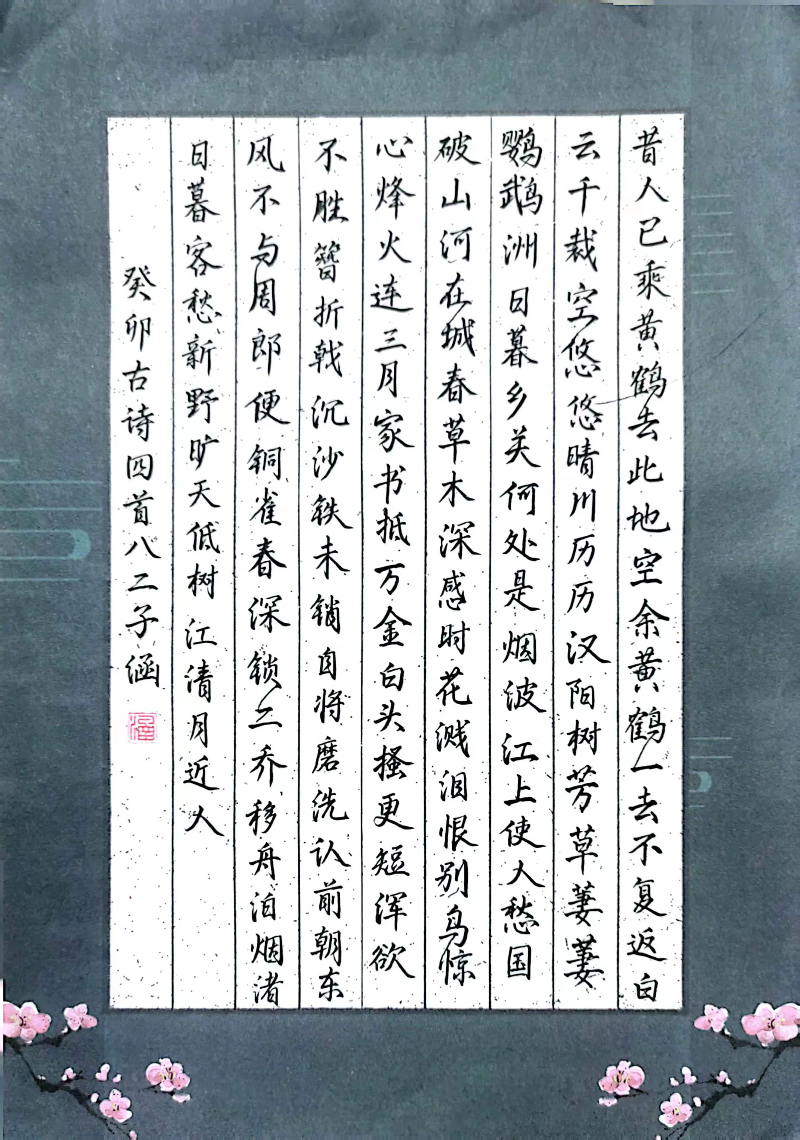 昔人已乘黄鹤去此地空余黄鹤一去不复返白
云千裁空悠悠晴川历历汉阳树芳草萋萋
鹦鹉洲日暮乡关何处是烟波江上使人愁国
破山河在城春草木深感时花溅泪恨别鸟惊
心烽火连三月家书抵万金白头搔更短浑欲
不胜簪折戟沉沙铁未销自将磨洗认前朝东
风不与周郎便铜雀春深锁二乔移舟泊烟渚
日暮客愁新野旷天低树江清月近人
癸卯古诗四首八二子涵